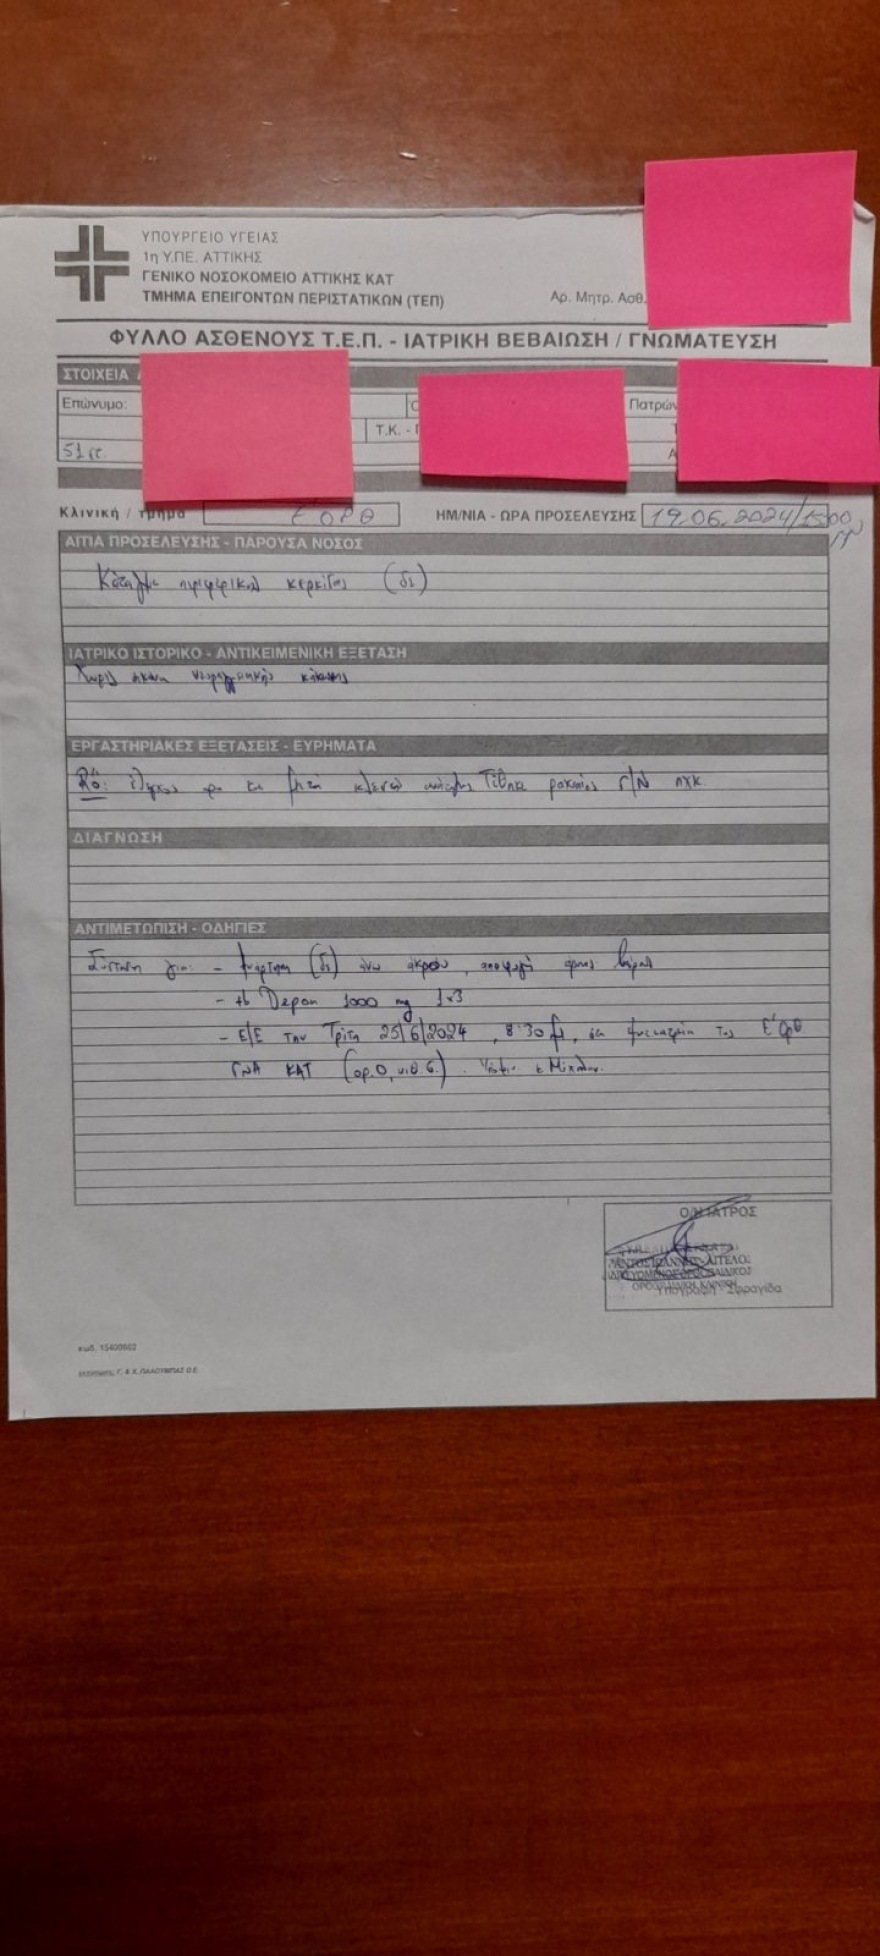 ΥΠΟΥΡΓΕΙΟ ΥΓΕΙΑΣ
1η Υ.ΠΕ. ΑΤΤΙΚΗΣ
ΓΕΝΙΚΟ ΝΟΣΟΚΟΜΕΙΟ ΑΤΤΙΚΗΣ ΚΑΤ
ΤΜΗΜΑ ΕΠΕΙΓΟΝΤΩΝ ΠΕΡΙΣΤΑΤΙΚΩΝ (ΤΕΠ)
Αρ. Μητρ. Ασθ.
ΦΥΛΛΟ ΑΣΘΕΝΟΥΣ Τ.Ε.Π. - ΙΑΤΡΙΚΗ ΒΕΒΑΙΩΣΗ / ΓΝΩΜΑΤΕΥΣΗ
ΣΤΟΙΧΕΙΑ
Επώνυμο: Πατρών
Τ.Κ. -
51
Κλινική / Τμήμα ΕΟΡΘ ΗΜ/ΝΙΑ - ΩΡΑ ΠΡΟΣΕΛΕΥΣΗΣ 19.06.2024/15:00
ΑΙΤΙΑ ΠΡΟΣΕΛΕΥΣΗΣ - ΠΑΡΟΥΣΑ ΝΟΣΟΣ
Κάταγμα περιφερικού κερκίδας (δε)
ΙΑΤΡΙΚΟ ΙΣΤΟΡΙΚΟ - ΑΝΤΙΚΕΙΜΕΝΙΚΗ ΕΞΕΤΑΣΗ
Χωρίς εικόνα νευραγγειακής κάκωσης
ΕΡΓΑΣΤΗΡΙΑΚΕΣ ΕΞΕΤΑΣΕΙΣ - ΕΥΡΗΜΑΤΑ
Rö: έλεγχος προ και μετά κλειστή ανάταξη. Τέθηκε Γ/Ν ΠΧΚ.
ΔΙΑΓΝΩΣΗ
ΑΝΤΙΜΕΤΩΠΙΣΗ - ΟΔΗΓΙΕΣ
Σύσταση για: - Ανάρτηση (δε) άνω άκρου, αποφυγή άρσης βάρους
- tb Depon 1000 mg 1x3
- Ε/Ε την Τρίτη 25/6/2024, 8:30 πμ, στα της Ε'Ορθ
ΓΝΑ ΚΑΤ (ορ.0,
Ο/Η ΙΑΤΡΟΣ
ΟΡΘΟΠΑΙΔΙΚΗ ΚΛΙΝΙΚΗ
Υπογραφή - Σφραγίδα
κωδ. 15400802